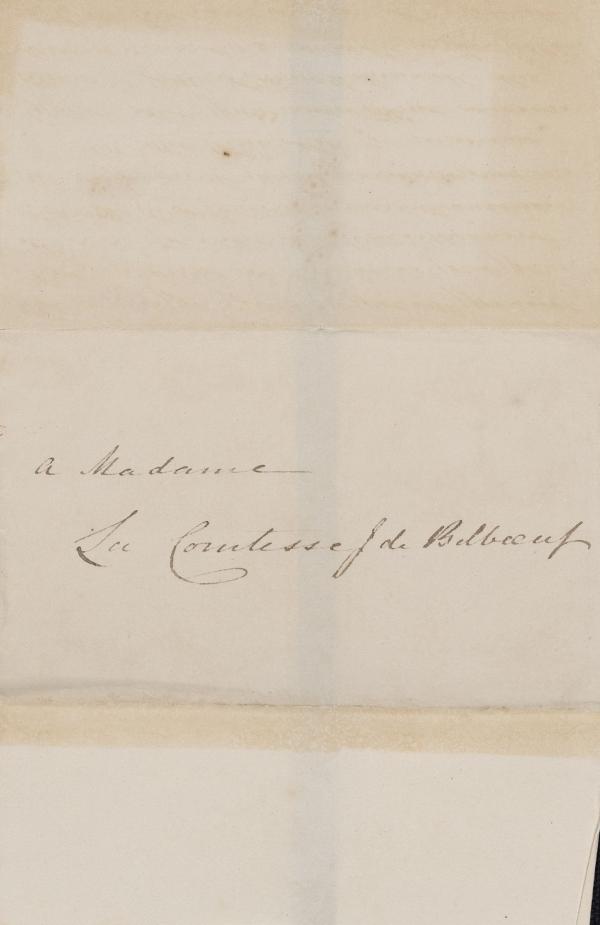 a Madame
La Comtesse de Belbœuf